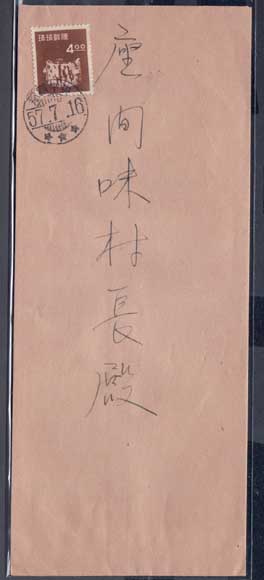 琉球郵便
4.00
57.7.16
座間味村長殿